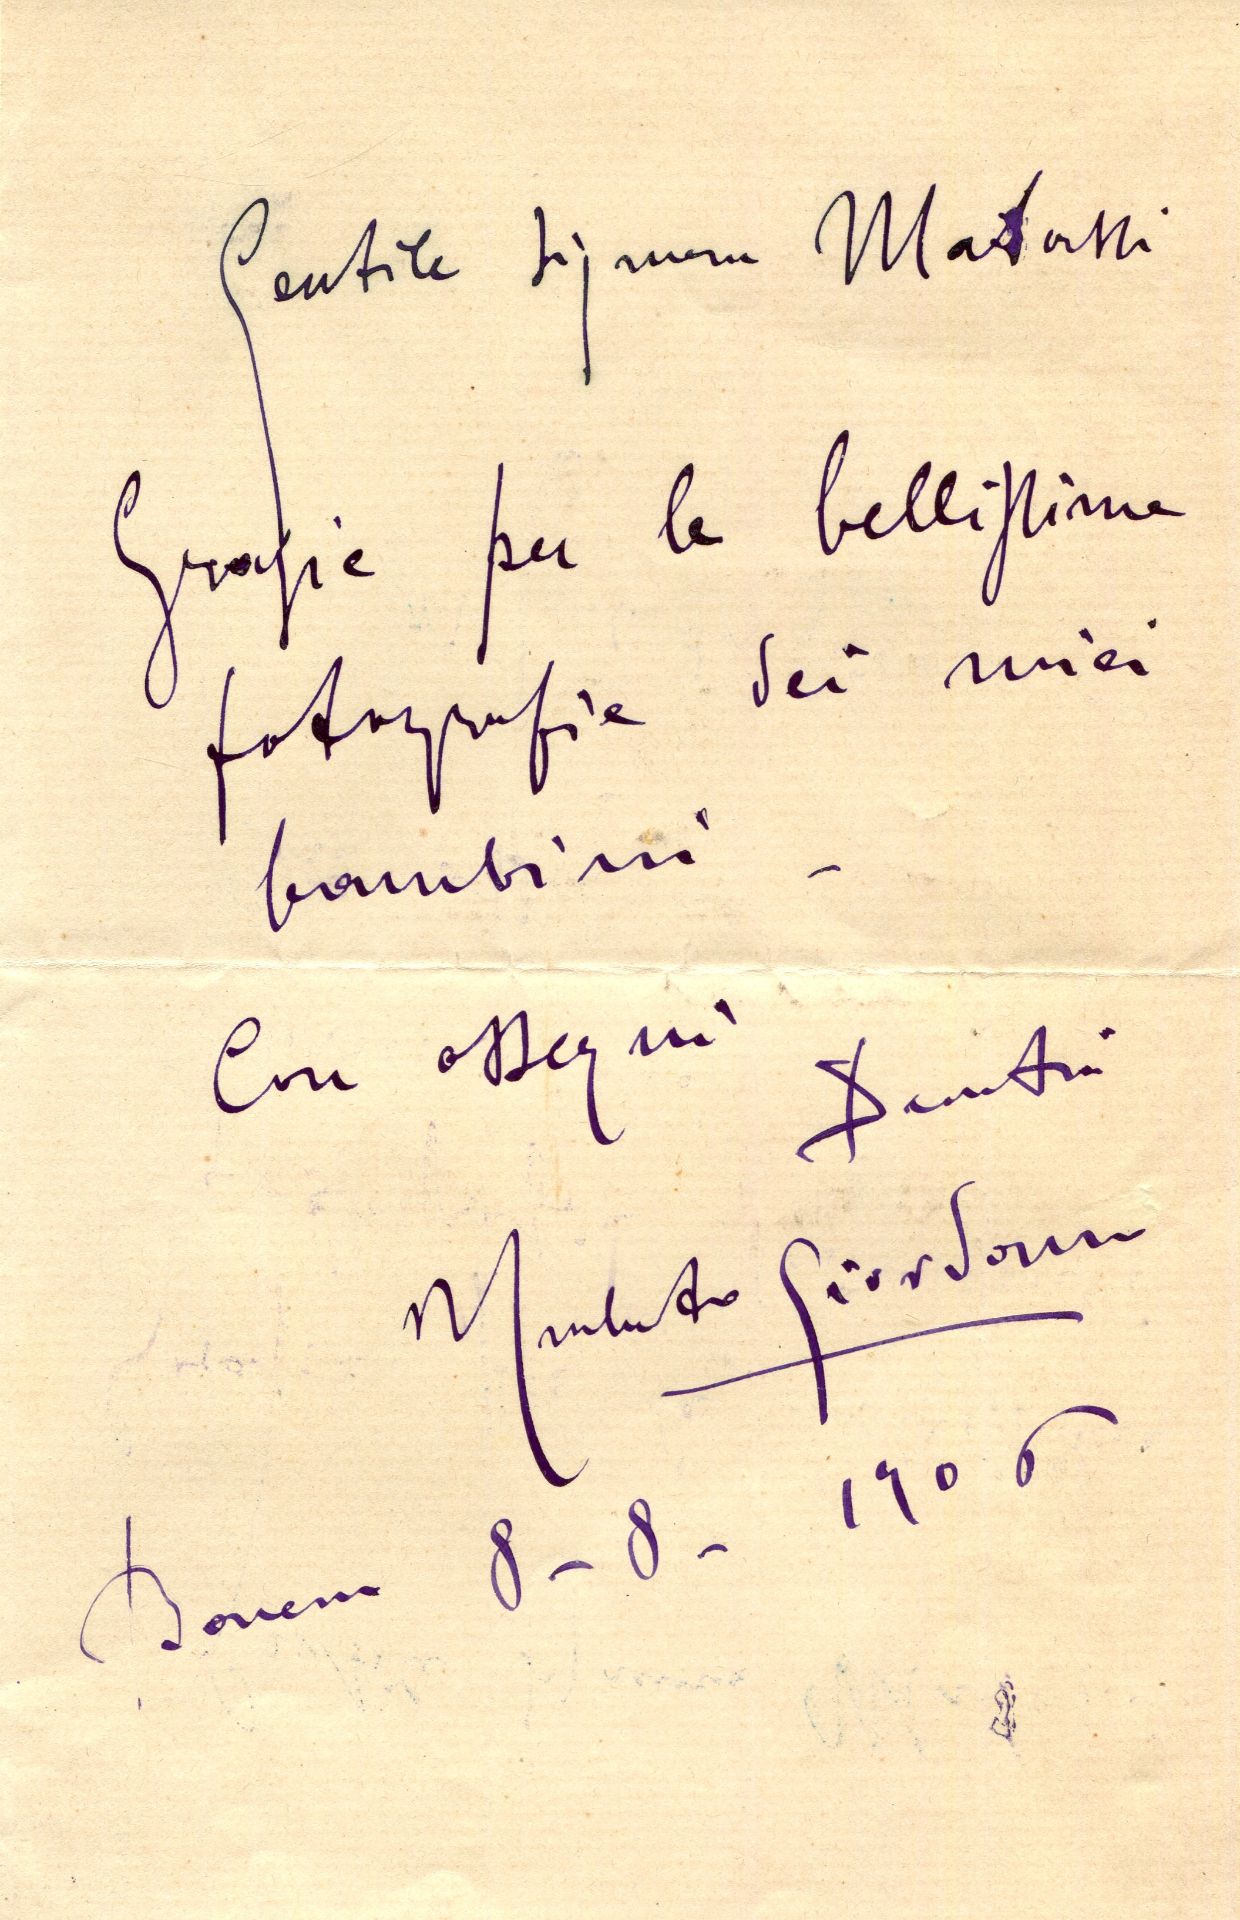 Gentile Signora Matossi
Grazie per le bellissime
fotografie dei miei
bambini -
Con ossequi Devoti
Umberto Giordano
Baveno 8-8-1906